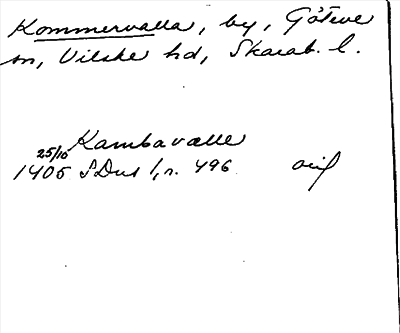 Kommervalla, by, Göteve
sn, Vilske hd, Skarab. l.
Kambavalle
25/10
1405 SDns 1, n. 496 orig